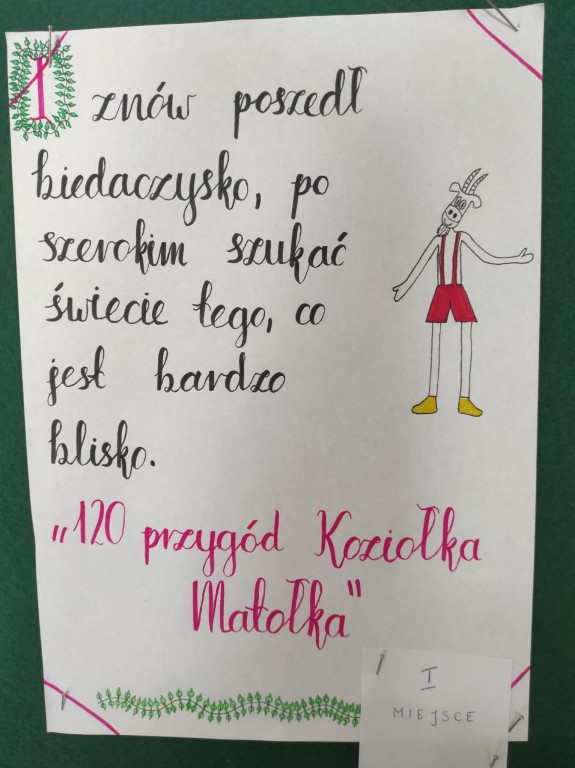 I znów poszedł
biedaczysko, po
szerokim szukać
świecie tego, co
jest bardzo
blisko.
„120 przygód Koziołka
Matołka"
I
MIEJSCE